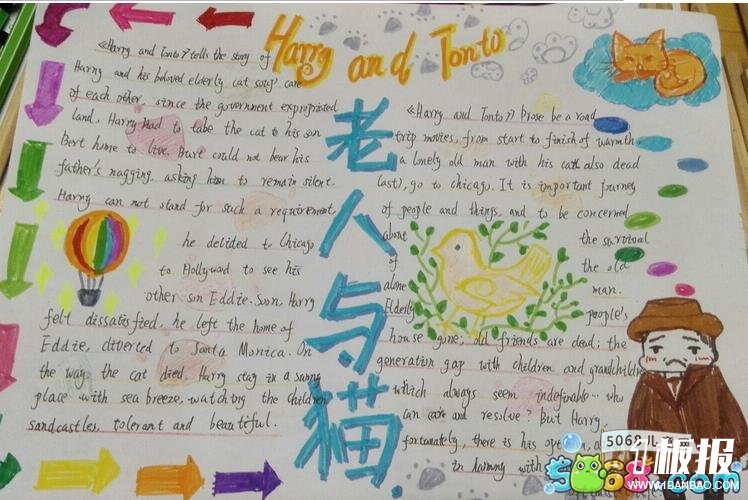 Harry and Tonto
老人与猫
《Harry and Tonto》tells the story of
Harry and his beloved elderly cat song' care
of each other, since the government expropriated
land, Harry had to take the cat to his son
Bert home to live. Burt could not bear his
father's nagging, asking him to remain silent.
Harry can not stand for such a requirement,
he decided to Chicago
to Hollywood to see his
other son Eddie. Soon, Harry
felt dissatisfied, he left the home of
Eddie, diverted to Santa Monica. On
the way, the cat died. Harry stay in a sunny
place with sea breeze, watching the children
sandcastles, tolerant and beautiful.
《Harry and Tonto》 prose be a road
trip movies, from start to finish of warmth.
a lonely old man with his cat also dead
last), go to chicago. It is important journey
of people and things, and to be concerned
about the survival
of the old
alone man.
Elderly people's
house gone; old friends are dead; the
generation gap with children and grandchildren
which always seem indefinable... who
can care and resolve? But Harry,
fortunately, there is his
in harmony with
5068儿
板报
WWW.1BANBAO.COM